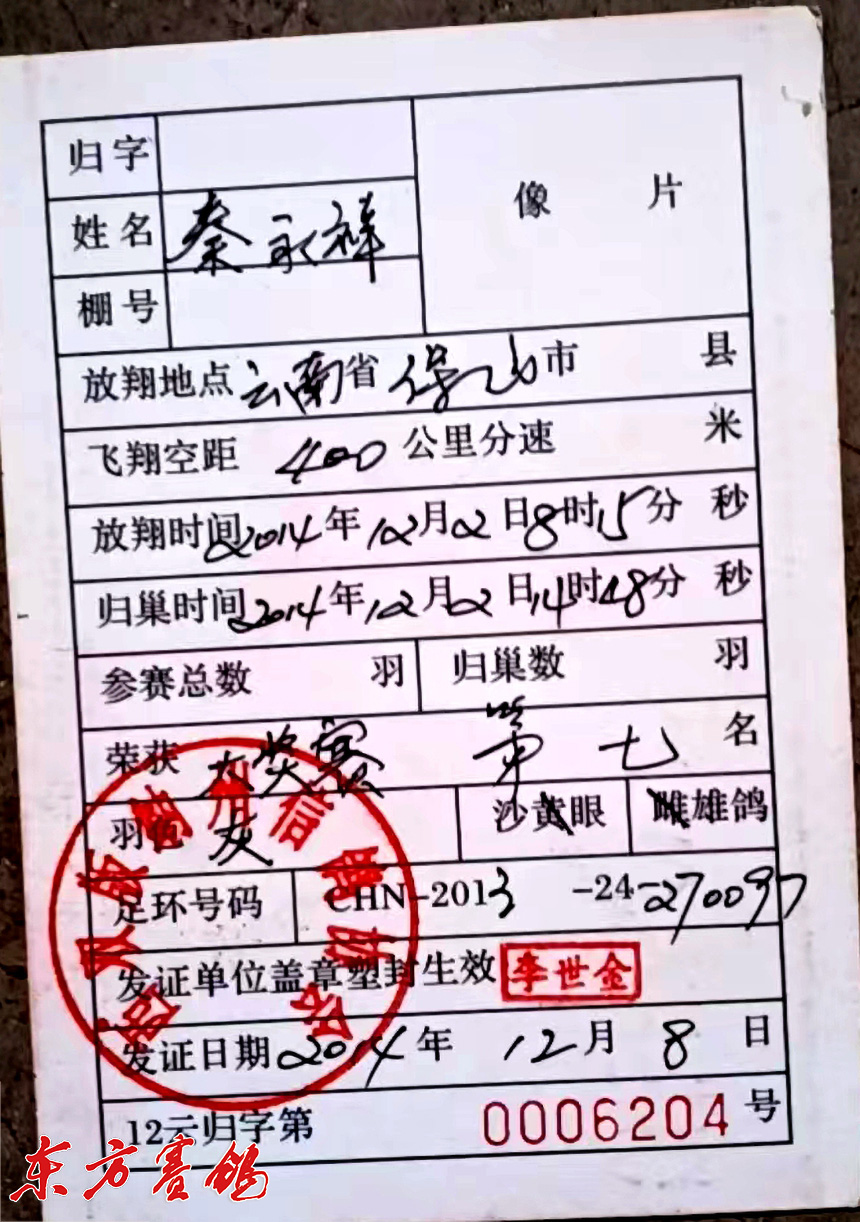 归字
像 片
姓名 秦永祥
棚号
放翔地点 云南省 保山市 县
飞翔空距 400 公里分速 米
放翔时间 2014年12月2日8时15分 秒
归巢时间 2014年12月2日14时48分 秒
参赛总数 羽 归巢数 羽
荣获 大奖赛 第 七 名
羽色 灰 沙黄眼 雌雄鸽
足环号码 CHN-2013 -24-270097
发证单位盖章塑封生效 李世金
发证日期 2014年 12月 8 日
12云归字第 0006204 号
东方赛鸽